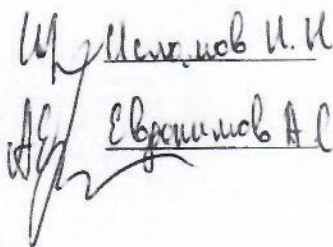 Исламов И. И
Евдокимов А С